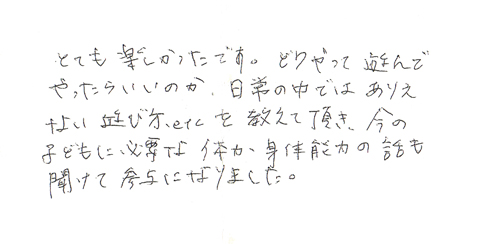 とても楽しかったです。どうやって遊んで
やったらいいのか、日常の中ではありえ
ない遊び方、etcを教えて頂き、今の
子どもに必要な体力、身体能力の話も
聞けて参考になりました。